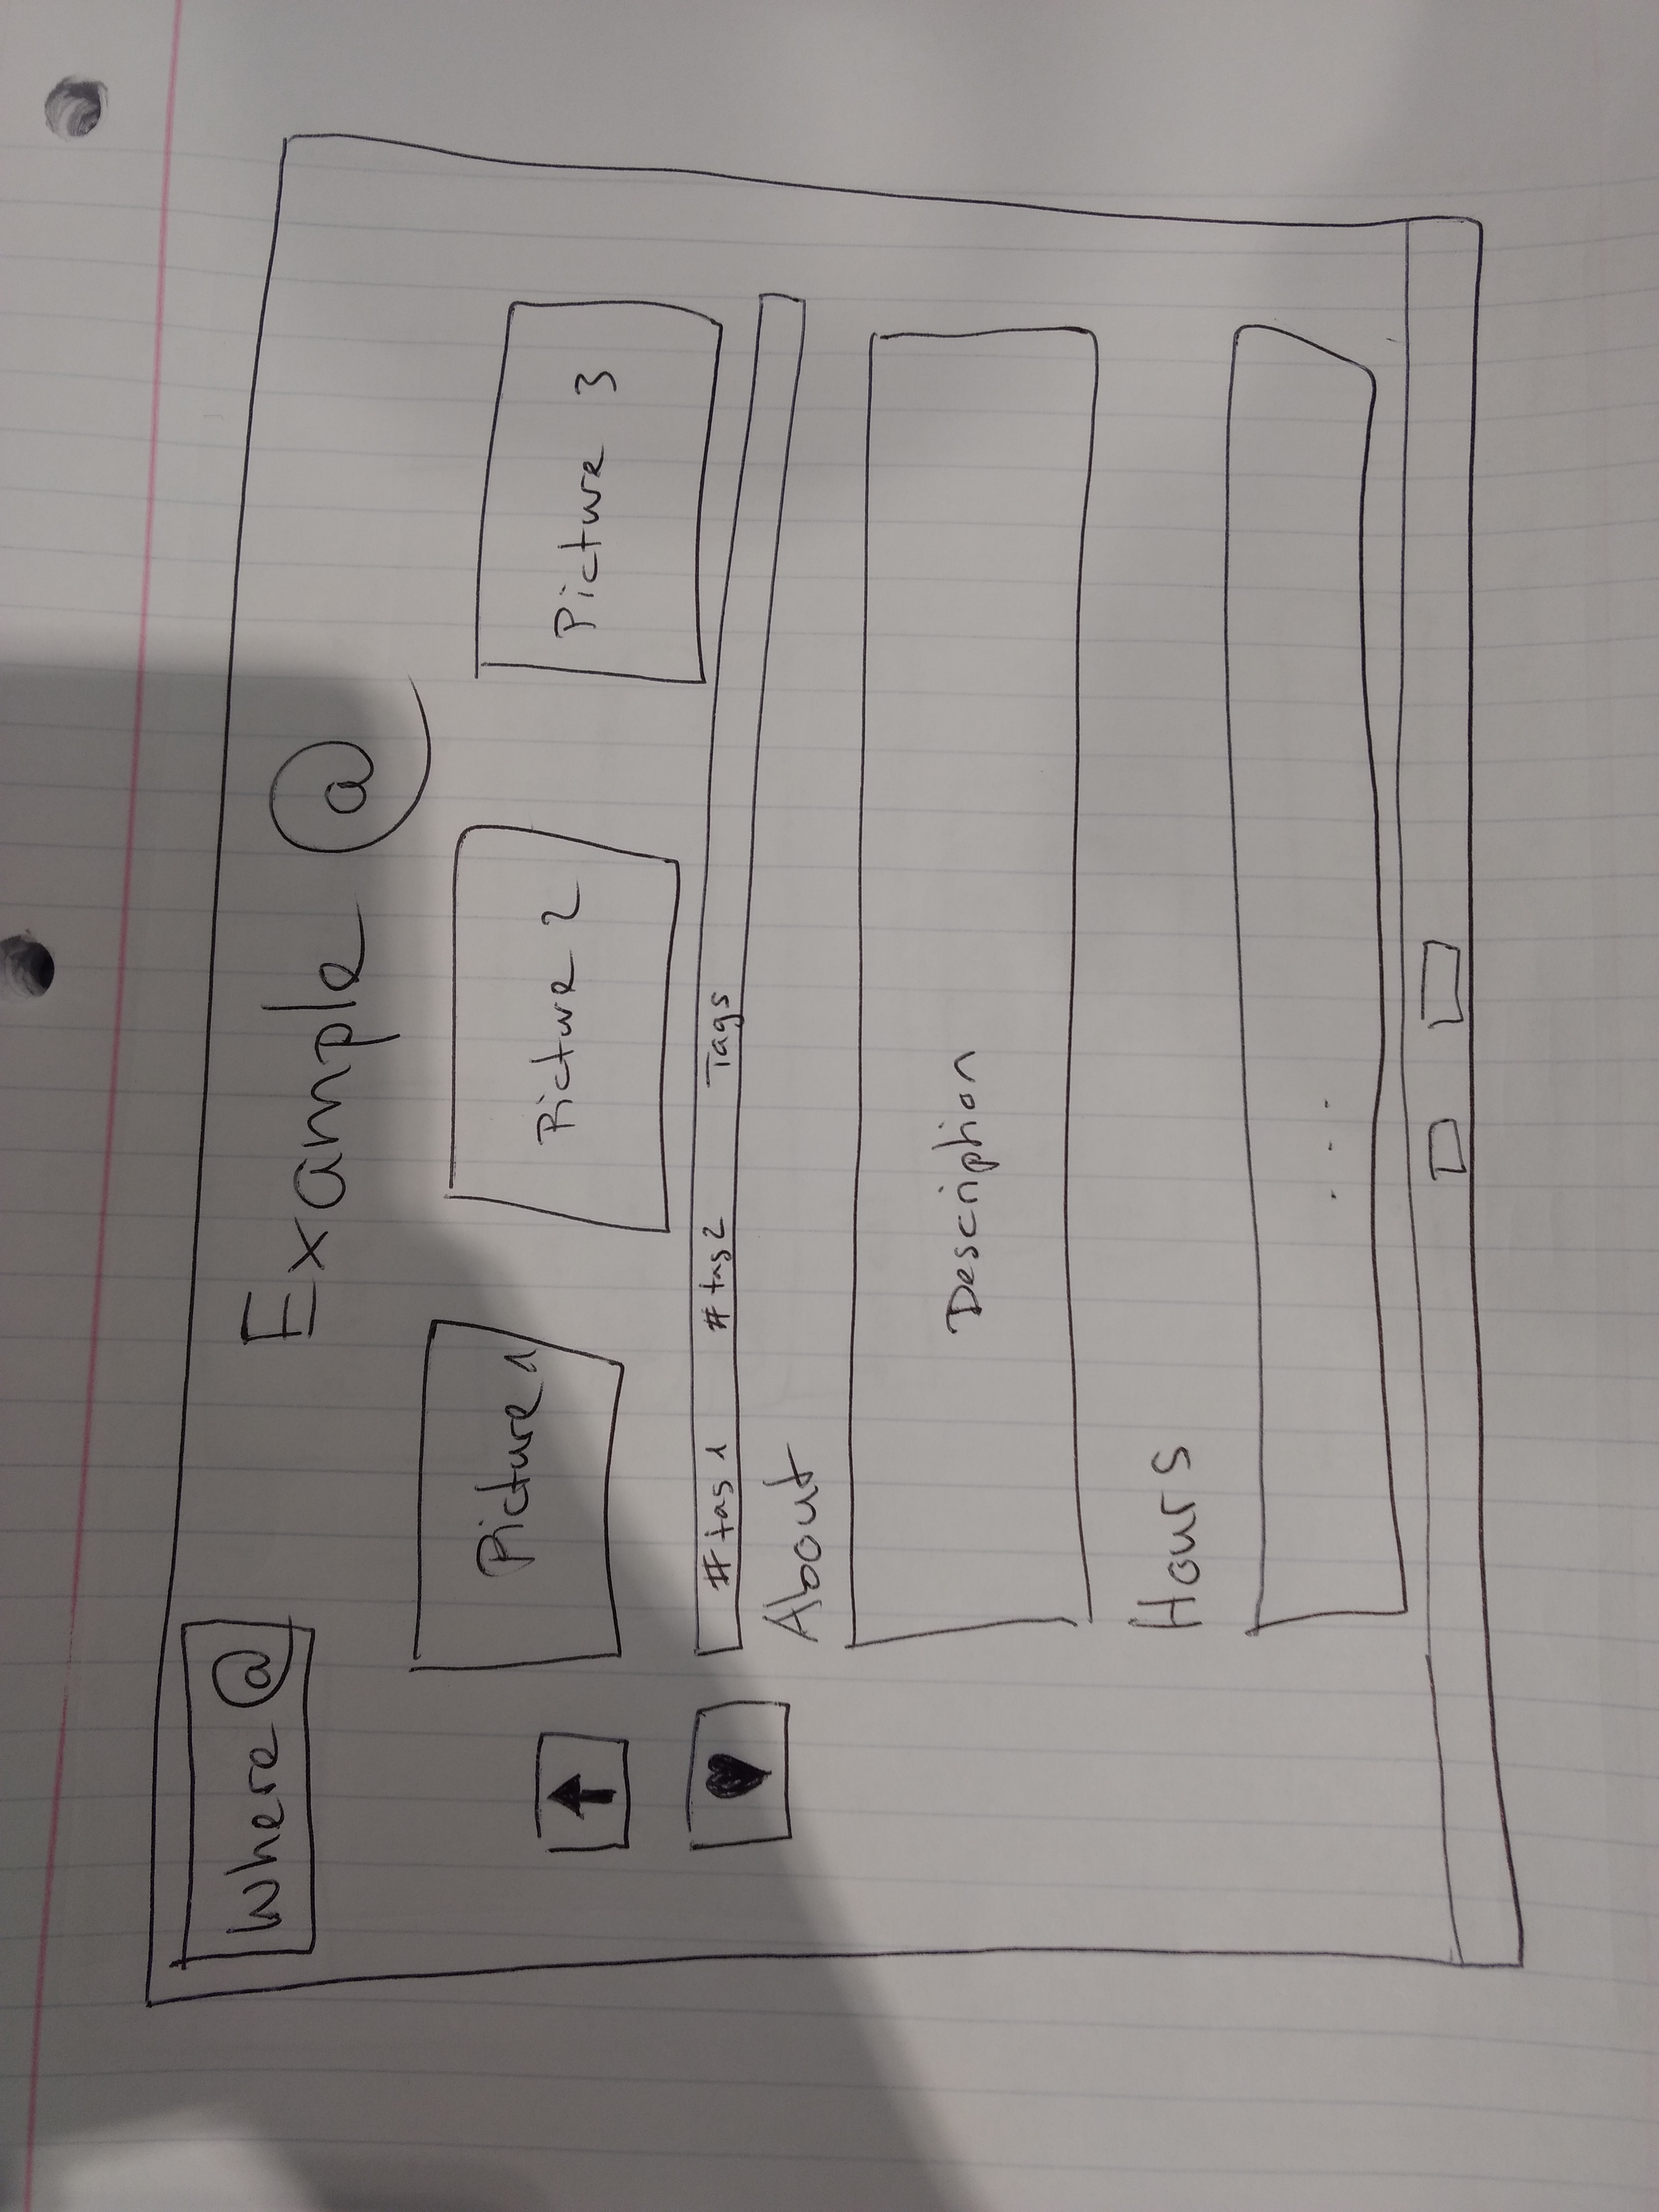 Where @
Example @
Picture 1
Picture 2
Picture 3
#tag1 #tag2 Tags
About
Description
Hours
...